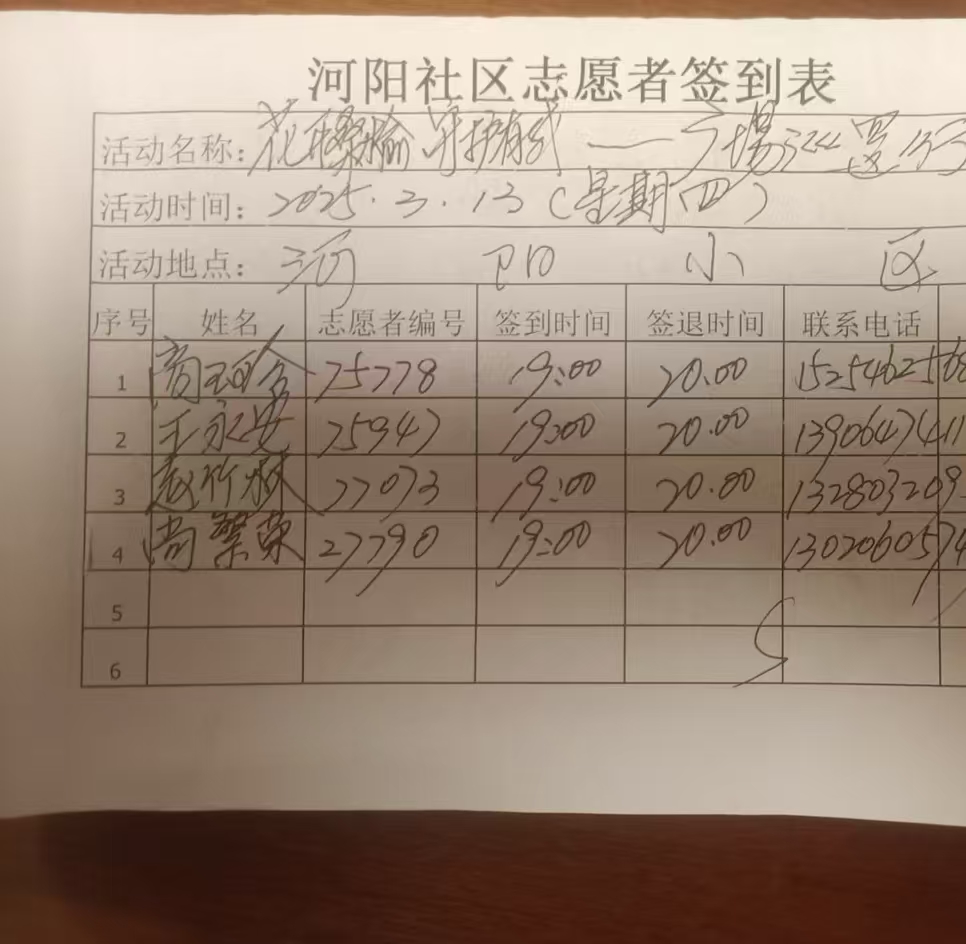 河阳社区志愿者签到表
活动名称: 花样桑榆 守护有我 —— 广场
活动时间: 2025.3.13(星期四)
活动地点: 河 阳 小 区
序号 姓名 志愿者编号 签到时间 签退时间 联系电话
1 75778 19:00 20.00 1525462568
2 王永安 75947 19:00 20.00 1390647411
3 赵竹林 77073 19:00 20.00 132803209
4 尚繁荣 27790 19:00 20.00 1302060574
5
6